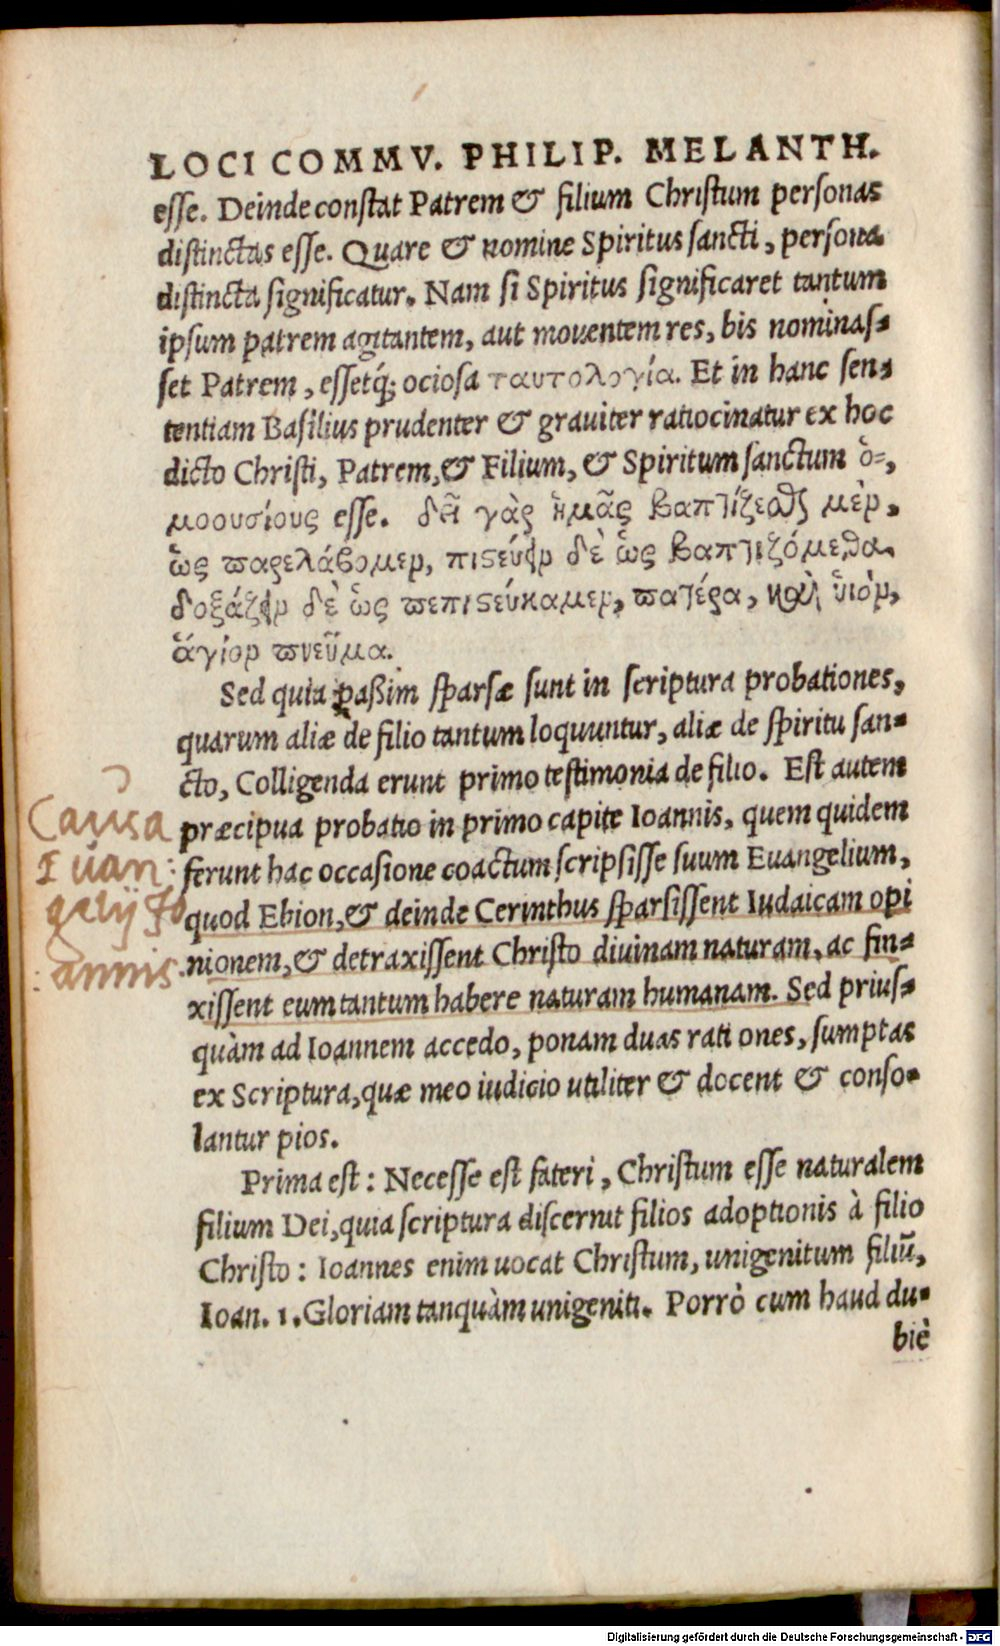 LOCI COMMV. PHILIP. MELANTH.
esse. Deinde constat Patrem & filium Christum personas
distinctas esse. Quare & nomine Spiritus sancti, persona
distincta significatur. Nam si Spiritus significaret tantum
ipsum patrem agitantem, aut mouentem res, bis nominas-
set Patrem, essetq́; ociosa ταυτολογία. Et in hanc sen-
tentiam Basilius prudenter & grauiter ratiocinatur ex hoc
dicto Christi, Patrem, & Filium, & Spiritum sanctum ὁ-,
μοουσίους esse. δεῖ γὰρ ἡμᾶς βαπτίζεσθαι μὲν,
ὡς παρελάβομεν, πιστεύειν δὲ ὡς βαπτιζόμεθα,
δοξάζειν δὲ ὡς πεπιστεύκαμεν, πατέρα, καὶ ὑιὸν,
ἅγιον πνεῦμα.
Sed quia paßim sparsæ sunt in scriptura probationes,
quarum aliæ de filio tantum loquuntur, aliæ de spiritu san-
cto, Colligenda erunt primo testimonia de filio. Est autem
præcipua probatio in primo capite Ioannis, quem quidem
ferunt hac occasione coactum scripsisse suum Euangelium,
quod Ebion, & deinde Cerinthus sparsissent Iudaicam opi
nionem, & detraxissent Christo diuinam naturam, ac fin-
xissent eum tantum habere naturam humanam. Sed prius-
quàm ad Ioannem accedo, ponam duas rati ones, sumptas
ex Scriptura, quæ meo iudicio utiliter & docent & conso-
lantur pios.
Causa
Euan:
gelij Jo
:annis.
Prima est: Necesse est fateri, Christum esse naturalem
filium Dei, quia scriptura discernit filios adoptionis à filio
Christo: Ioannes enim uocat Christum, unigenitum filiũ,
Ioan. 1. Gloriam tanquàm unigeniti. Porrò cum haud du-
biè
Digitalisierung gefördert durch die Deutsche Forschungsgemeinschaft - DFG